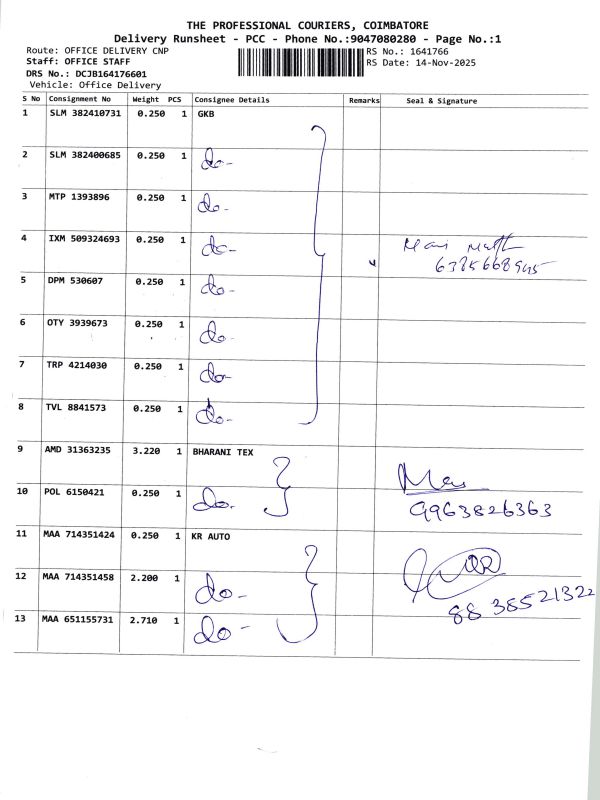 THE PROFESSIONAL COURIERS, COIMBATORE
Delivery Runsheet - PCC - Phone No.:9047080280 - Page No.:1
Route: OFFICE DELIVERY CNP
RS No.: 1641766
Staff: OFFICE STAFF
RS Date: 14-Nov-2025
DRS No.: DCJB164176601
Vehicle: Office Delivery
S No Consignment No Weight PCS Consignee Details Remarks Seal & Signature
1 SLM 382410731 0.250 1 GKB
2 SLM 382400685 0.250 1 do-
3 MTP 1393896 0.250 1 do-
4 IXM 509324693 0.250 1 do-
6385668945
5 DPM 530607 0.250 1 do-
6 OTY 3939673 0.250 1 do-
7 TRP 4214030 0.250 1 do-
8 TVL 8841573 0.250 1 do-
9 AMD 31363235 3.220 1 BHARANI TEX
10 POL 6150421 0.250 1 do-
9963826363
11 MAA 714351424 0.250 1 KR AUTO
12 MAA 714351458 2.200 1 do-
8838521322
13 MAA 651155731 2.710 1 do-